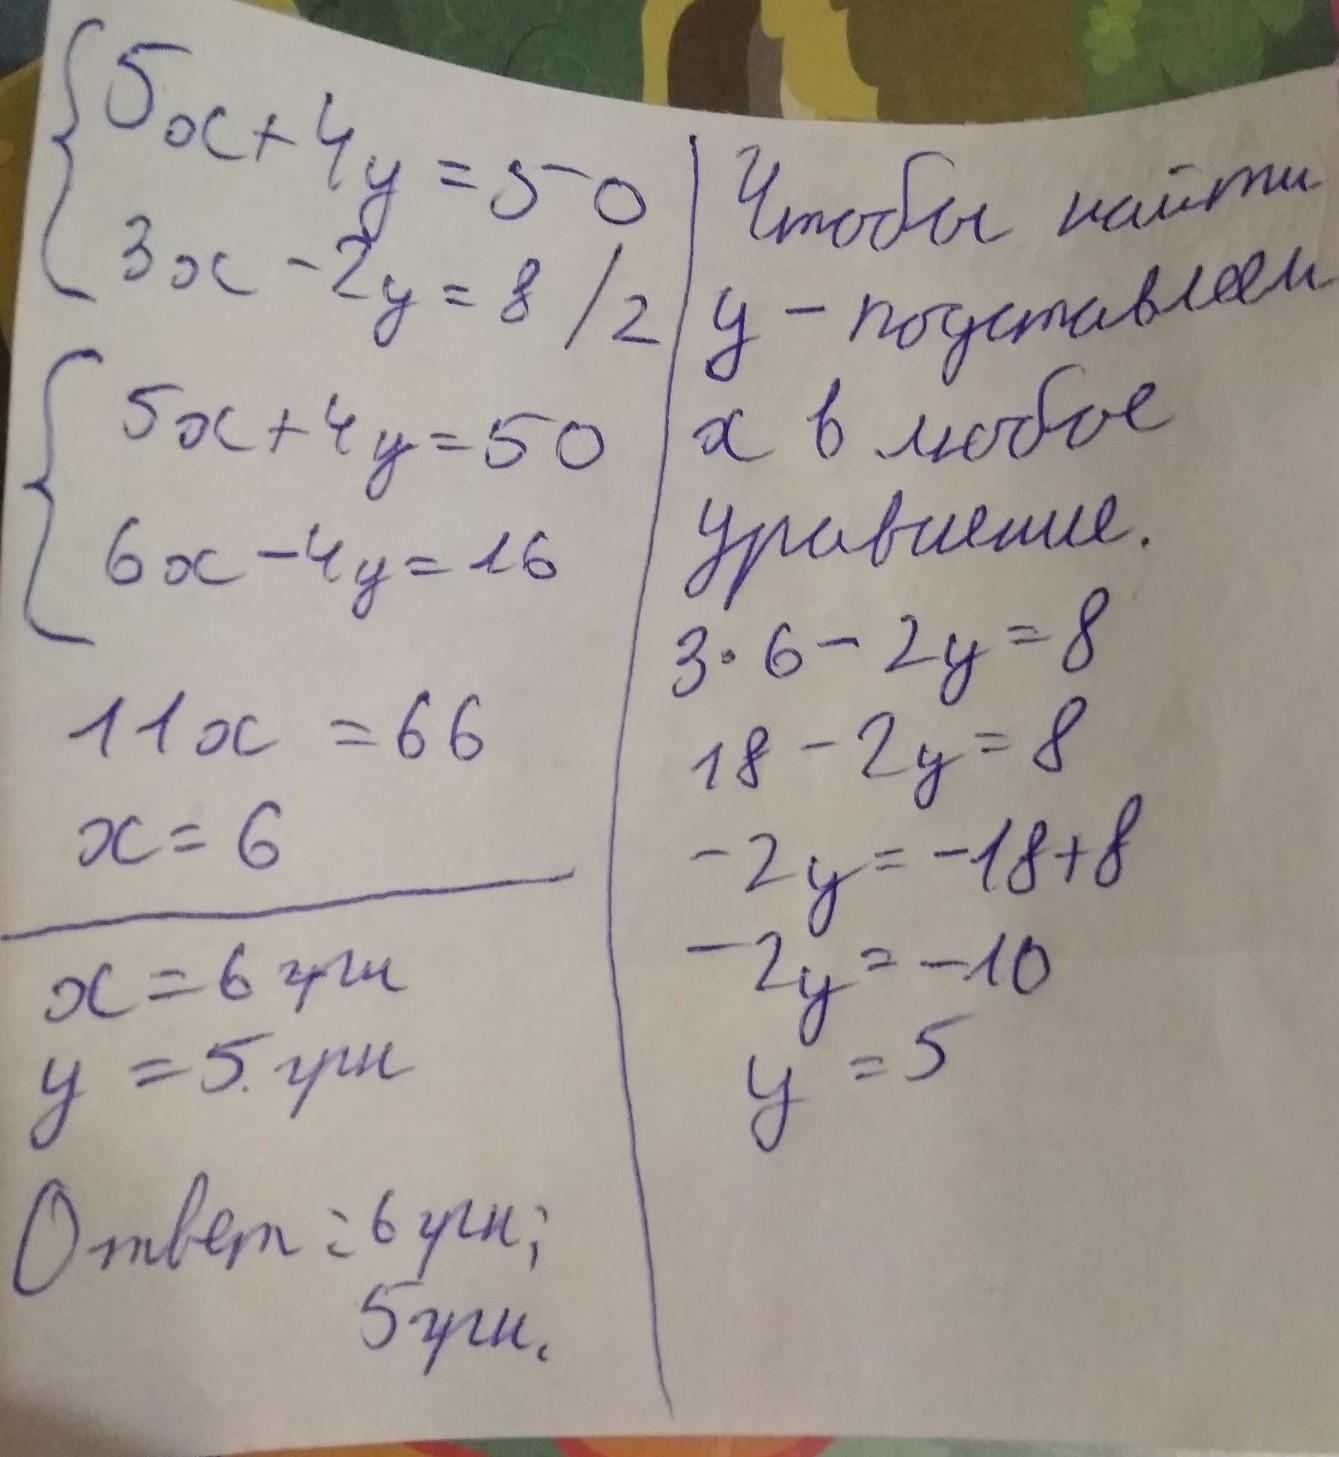 5x+4y=50
3x-2y=8 /2
5x+4y=50
6x-4y=16
11x =66
x=6
x=6 грн
y=5 грн
Ответ: 6 грн;
5 грн.
Чтобы найти
y - подставляем
x в любое
уравнение.
3·6-2y=8
18-2y=8
-2y=-18+8
-2y=-10
y=5